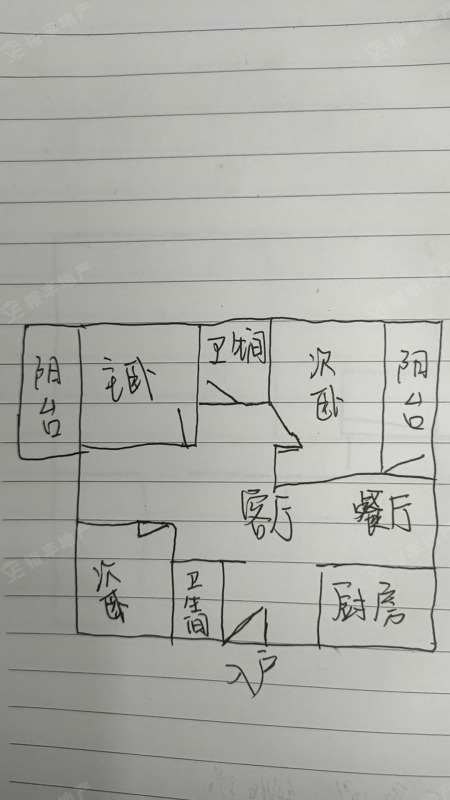 阳台
主卧
卫生间
次卧
阳台
客厅
餐厅
次卧
卫生间
厨房
入户